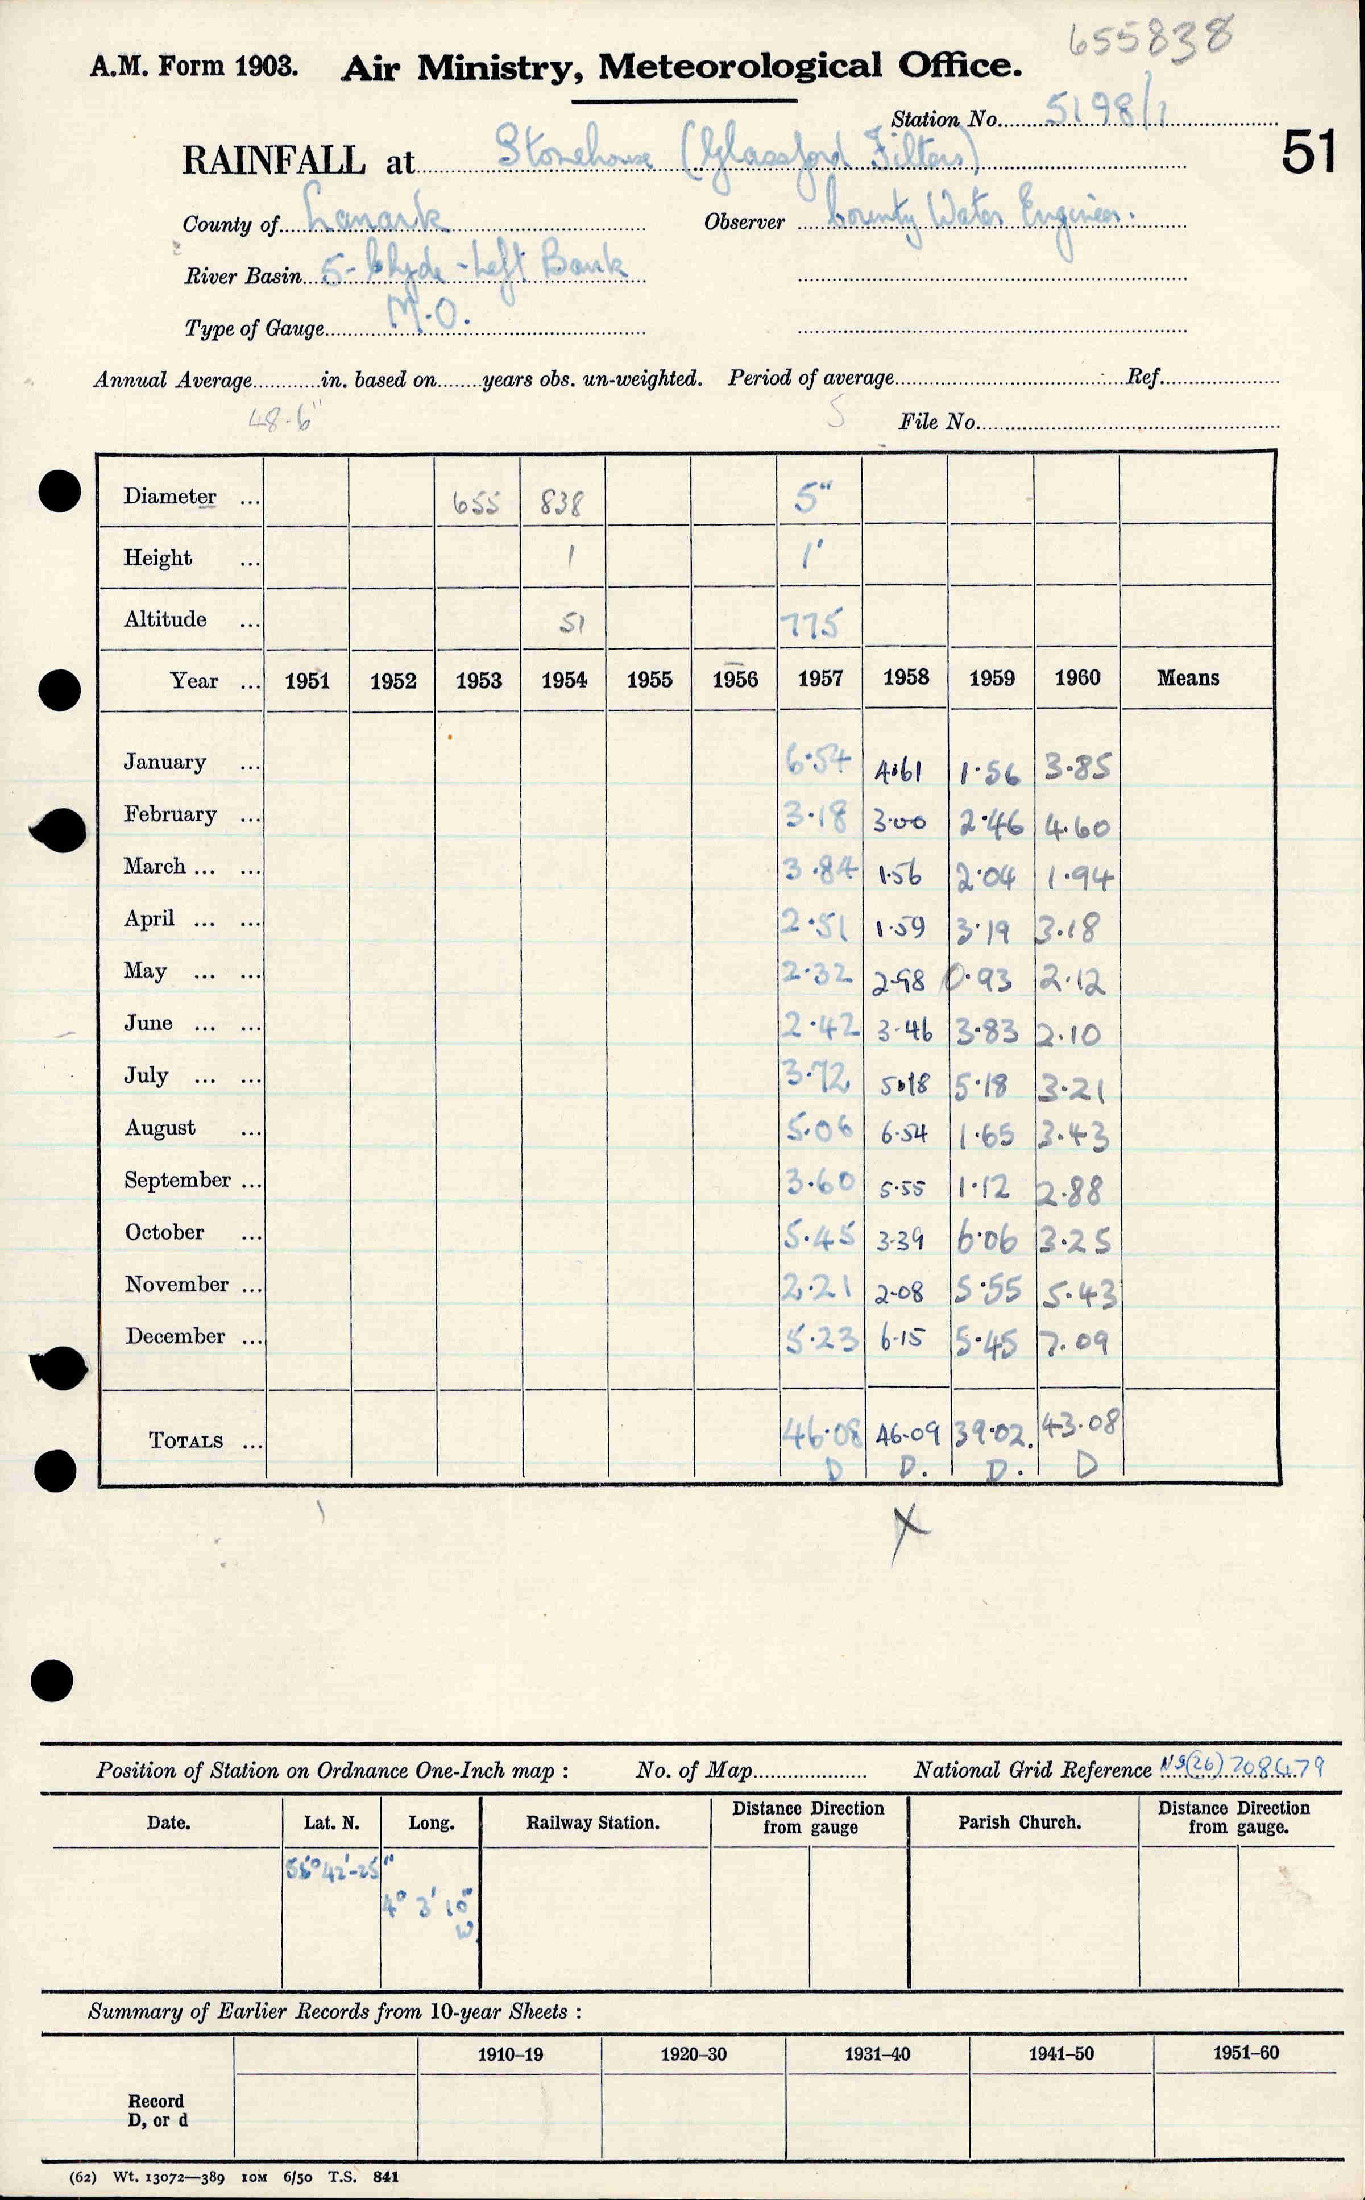 655838
A.M. Form 1903. Air Ministry, Meteorological Office.
Station No. 5198/1
RAINFALL at Stonehouse (Glassford Filters) 51
County of Lanark Observer County Water Engineer.
River Basin 5 - Clyde - Left Bank
Type of Gauge M.O.
Annual Average in. based on years obs. un-weighted. Period of average Ref.
48.6" 5 File No.
Diameter ... 655 838 5"
Height ... 1 1'
Altitude ... 51 775
Year ... 1951 1952 1953 1954 1955 1956 1957 1958 1959 1960 Means
January ... 6.54 4.61 1.56 3.85
February ... 3.18 3.00 2.46 4.60
March ... ... 3.84 1.56 2.04 1.94
April ... ... 2.51 1.59 3.19 3.18
May ... ... 2.32 2.98 0.93 2.12
June ... ... 2.42 3.46 3.83 2.10
July ... ... 3.72 5.18 5.18 3.21
August ... 5.06 6.54 1.65 3.43
September ... 3.60 5.55 1.12 2.88
October ... 5.45 3.39 6.06 3.25
November ... 2.21 2.08 5.55 5.43
December ... 5.23 6.15 5.45 7.09
TOTALS ... 46.08 46.09 39.02. 43.08
D D. D. D
X
Position of Station on Ordnance One-Inch map : No. of Map National Grid Reference NS(26) 708479
Date. Lat. N. Long. Railway Station. Distance Direction from gauge Parish Church. Distance Direction from gauge.
55° 42'-25"
4° 3' 10"
W
Summary of Earlier Records from 10-year Sheets :
1910-19 1920-30 1931-40 1941-50 1951-60
Record
D, or d
(62) Wt. 13072—389 10M 6/50 T.S. 841